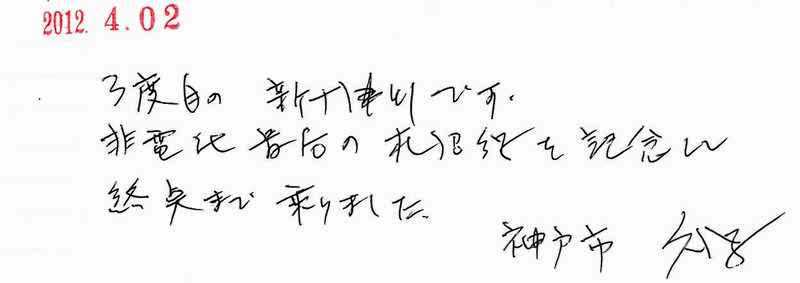 2012. 4.02
3度目の 新十津川です.
非電化最后の札沼線を記念に
終点まで 乗りました.
神戸市